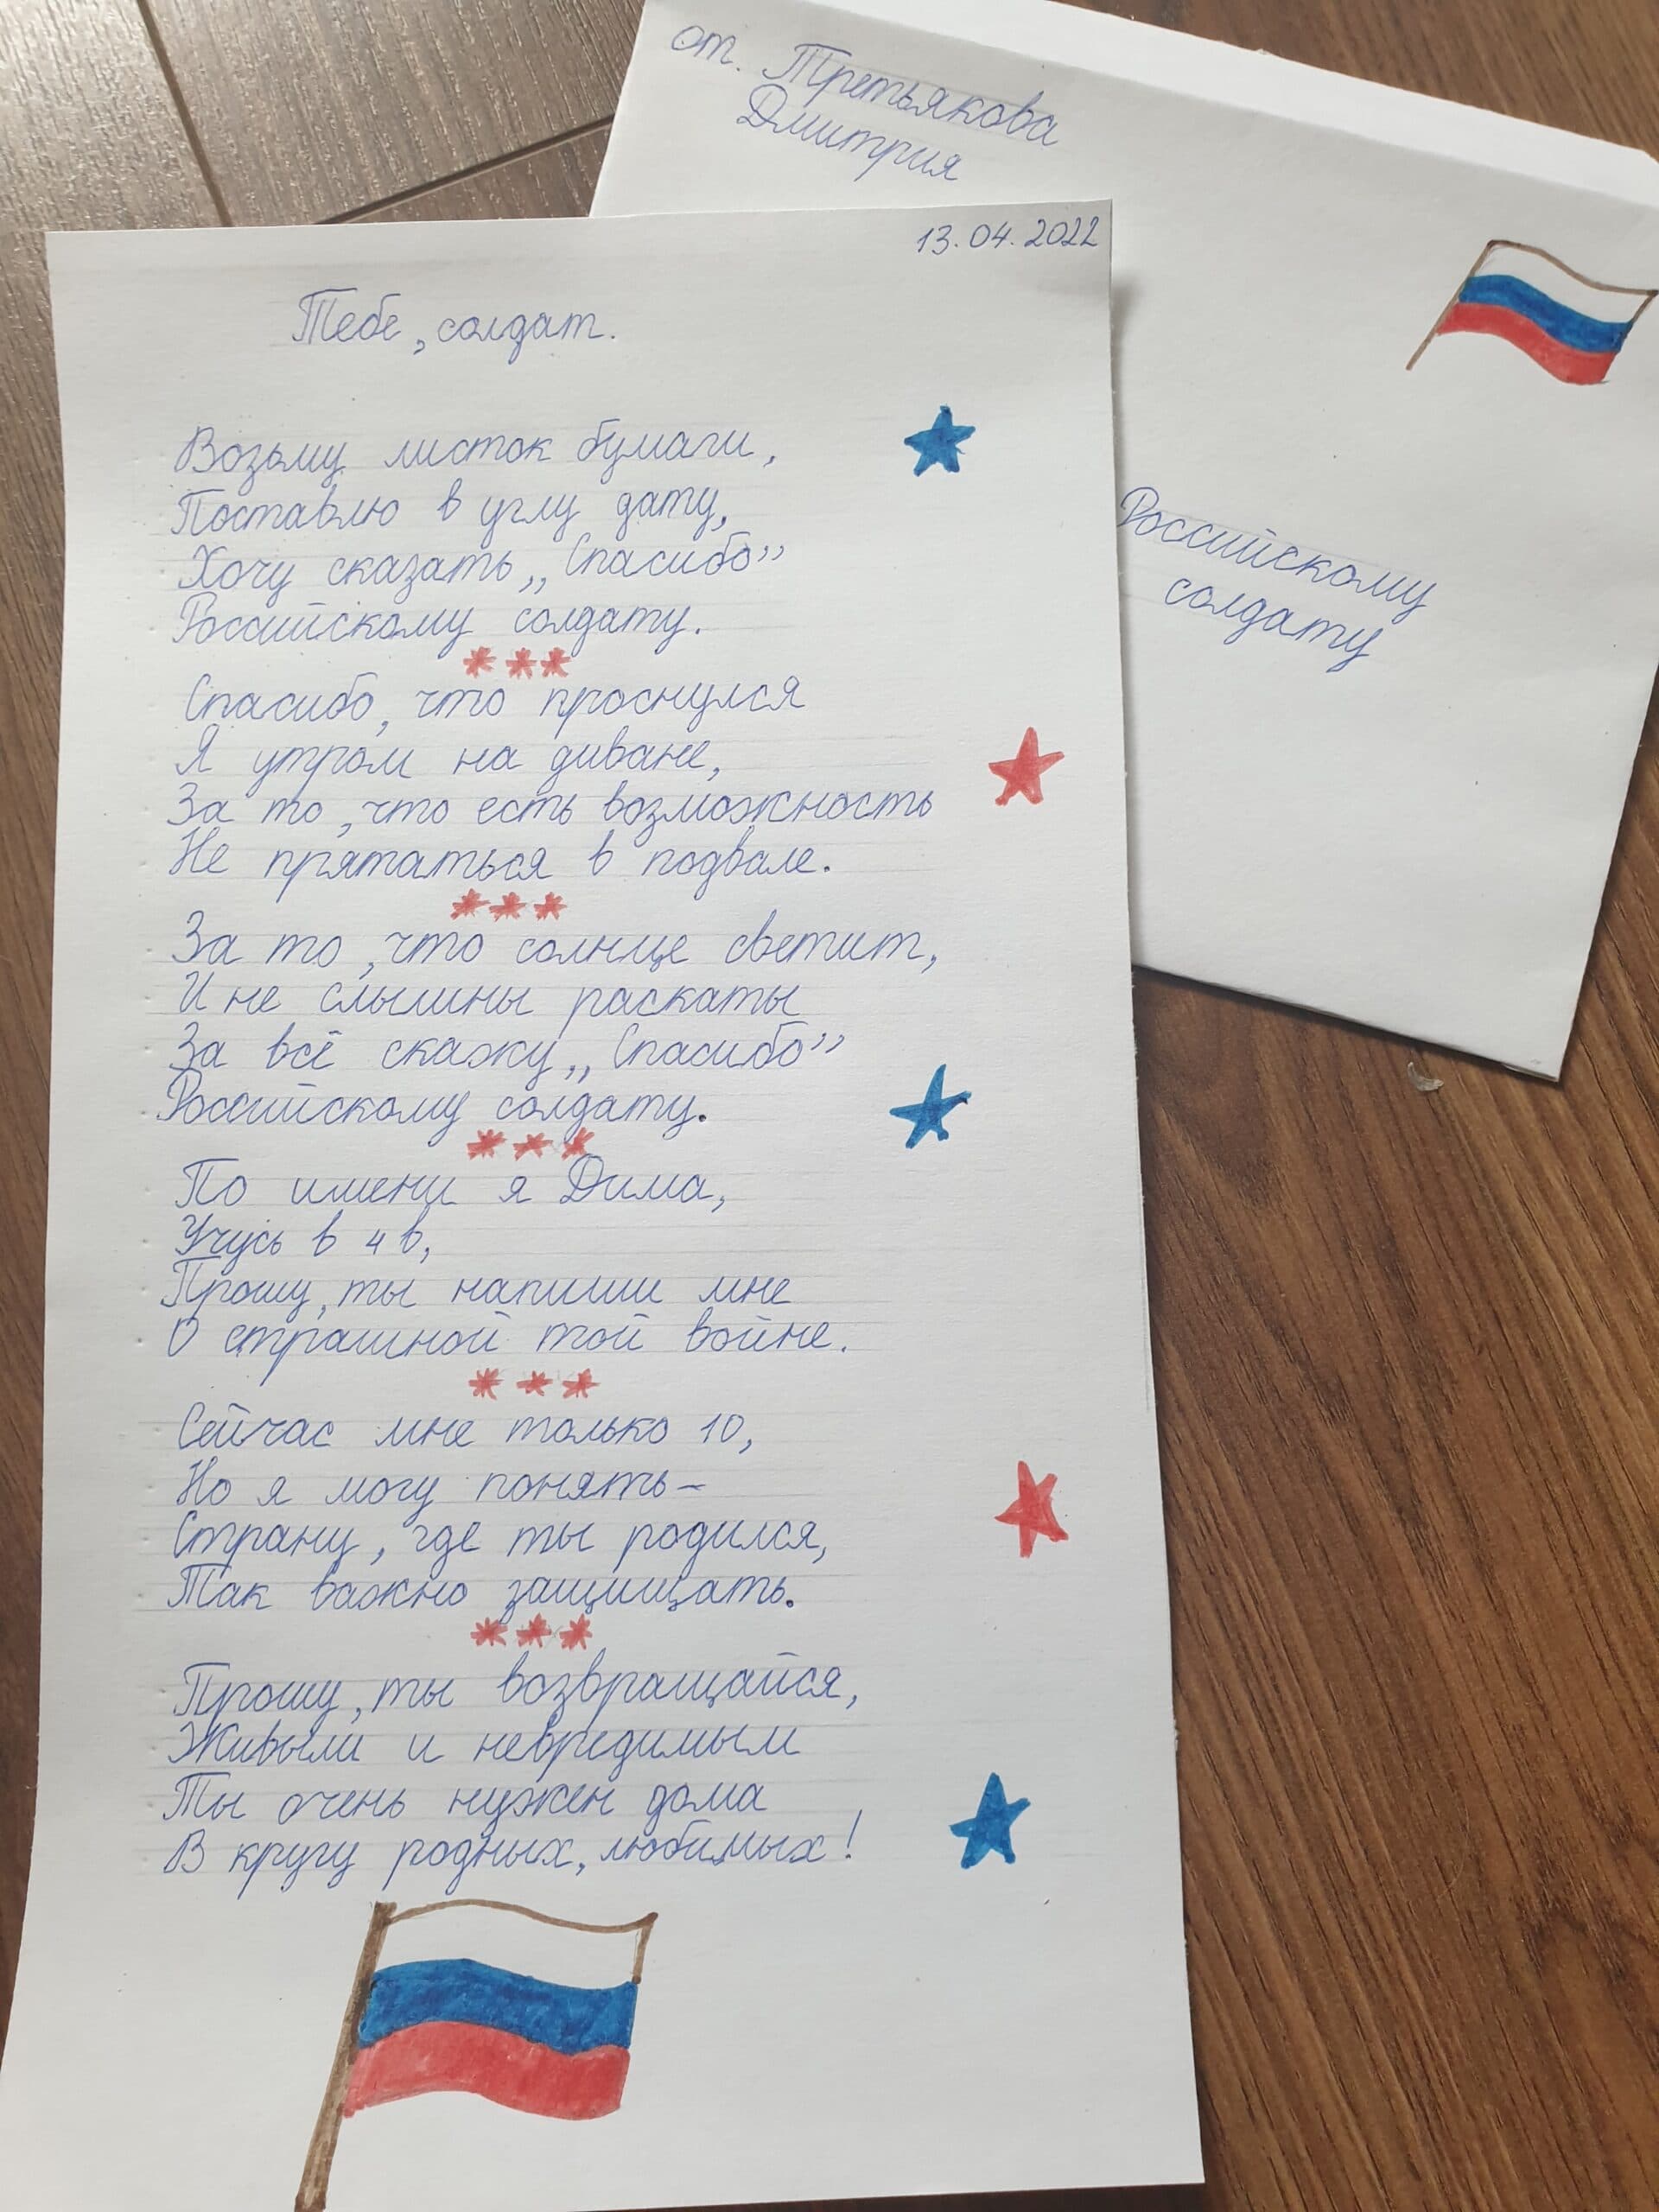 от. Третьякова
Дмитрия
Российскому
солдату
13.04.2022
Тебе, солдат.
Возьму листок бумаги,
Поставлю в углу дату,
Хочу сказать „Спасибо”
Российскому солдату.
***
Спасибо, что проснулся
Я утром на диване,
За то, что есть возможность
Не прятаться в подвале.
***
За то, что солнце светит,
И не слышны раскаты
За всё скажу „Спасибо”
Российскому солдату.
***
По имени я Дима,
Учусь в 4 в,
Прошу, ты напиши мне
О страшной той войне.
***
Сейчас мне только 10,
Но я могу понять –
Страну, где ты родился,
Так важно защищать.
***
Прошу, ты возвращайся,
Живым и невредимым
Ты очень нужен дома
В кругу родных, любимых!